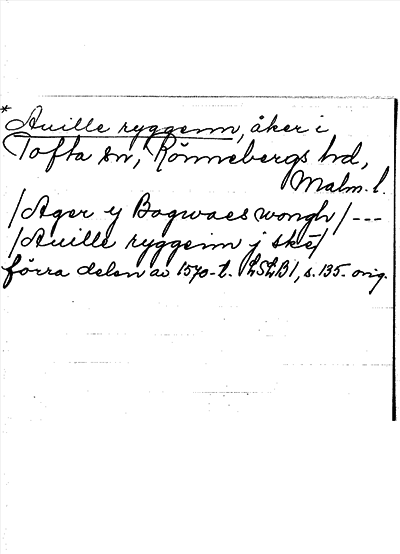 * Auille ryggenn, åker i
Tofta sn, Rönnebergs hd,
Malm. l.
/Ager y Bagwaes wongh/ ---
/Auille ryggenn j skē/
förra delen av 1570-t. LSLB1, s. 135. orig.